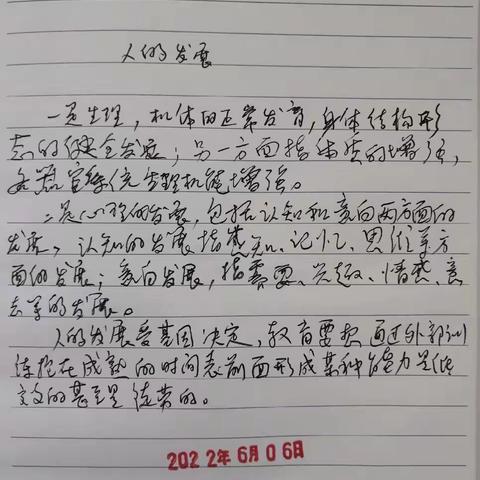 人的发展
一是生理，机体的正常发育，身体结构形
态的健全发展；另一方面指体质的增强，
各器官系统生理机能增强。
二是心理的发展，包括认知和意向两方面的
发展，认知的发展指感知、记忆、思维等方
面的发展；意向发展，指需要、兴趣、情感、意
志等的发展。
人的发展受基因决定，教育要想通过外部训
练抢在成熟的时间表前面形成某种能力是低
效的甚至是徒劳的。
2022年6月06日